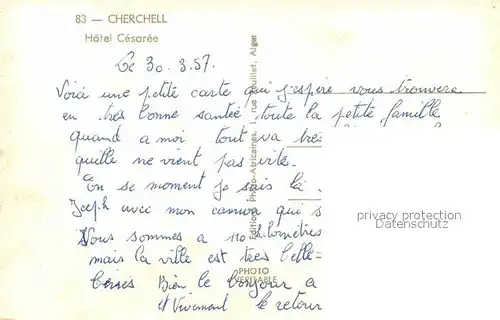 83 — CHERCHELL
Hôtel Césarée
Le 30.3.57.
Voici une petite carte qui j'espère vous trouvera
en très bonne santée toute la petite famille
quand a moi tout va très
quille ne vient pas vite.
En se moment je suis là
avec mon camion qui s
Nous sommes a 110 kilomètres
mais la ville est très belle
Bien le bonjour a
Vivement le retour
Editions Photo-Africaines, rue Alger
PHOTO
VERITABLE
privacy protection
Datenschutz